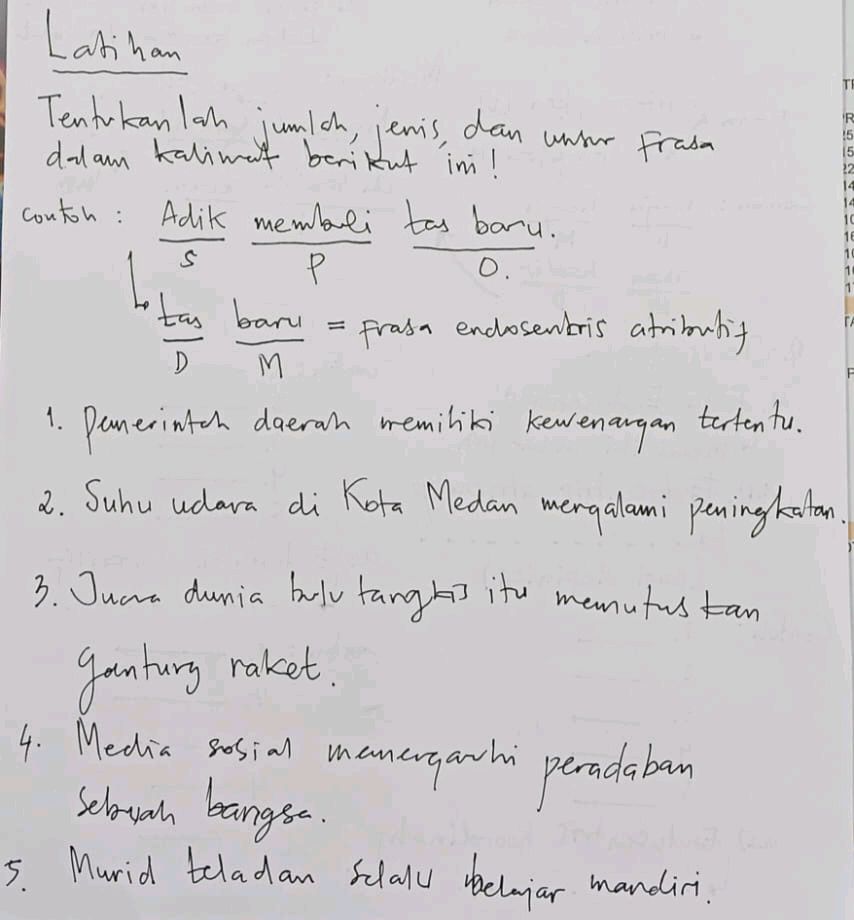 Latihan
Tentukanlah jumlah, jenis, dan unsur Frasa
dalam kalimat berikut ini!
contoh : Adik membeli tas baru.
S P O.
tas baru = Frasa endosentris atributif
D M
1. Pemerintah daerah memiliki kewenangan tertentu.
2. Suhu udara di Kota Medan mengalami peningkatan.
3. Juara dunia bulu tangkis itu memutuskan
gantung raket.
4. Media sosial memengaruhi peradaban
sebuah bangsa.
5. Murid teladan selalu belajar mandiri.